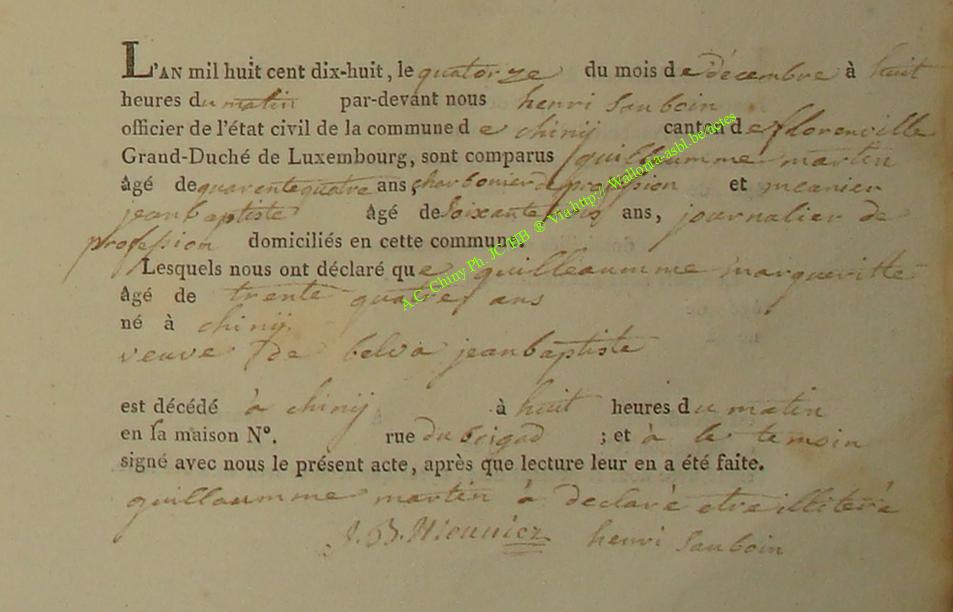 L'AN mil huit cent dix-huit, le quatorze du mois de décembre à huit
heures du matin par-devant nous henri Sauboin
officier de l'état civil de la commune de chinij canton de florenville
Grand-Duché de Luxembourg, sont comparus guilleaumme martin
âgé de quarente quatre ans, charbonier de profession et
jeanbaptiste âgé de Soixante ans, journalier de
profession domiciliés en cette commune.
Lesquels nous ont déclaré que guilleaumme margueritte
âgé de trente quatre ans
né à chinij
veuve de belva jeanbaptiste
est décédé à chinij à huit heures du matin
en la maison N°. rue du ; et à le temoin
signé avec nous le présent acte, après que lecture leur en a été faite.
guillaumme martin à declaré etre illiterè
J. B. henri Sauboin
A.C. Chiny Ph. JC HB ® Via http://Wallonia-asbl.be/notes